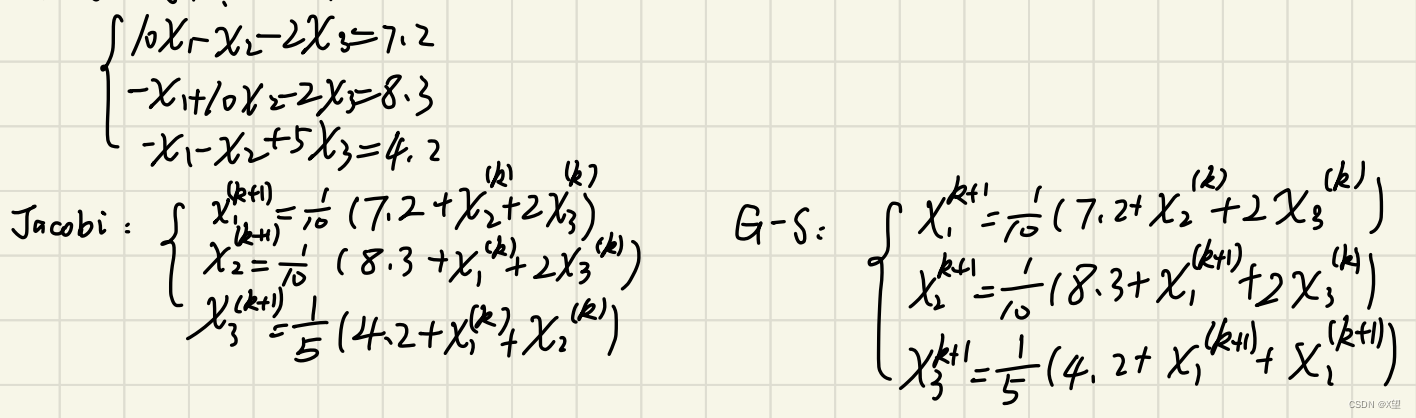 10x₁-x₂-2x₃=7.2
-x₁+10x₂-2x₃=8.3
-x₁-x₂+5x₃=4.2
Jacobi: x₁^(k+1)=1/10(7.2+x₂^(k)+2x₃^(k))
x₂^(k+1)=1/10(8.3+x₁^(k)+2x₃^(k))
x₃^(k+1)=1/5(4.2+x₁^(k)+x₂^(k))
G-S: x₁^k+1=1/10(7.2+x₂^(k)+2x₃^(k))
x₂^k+1=1/10(8.3+x₁^(k+1)+2x₃^(k))
x₃^k+1=1/5(4.2+x₁^(k+1)+x₁^(k+1))
CSDN @X望